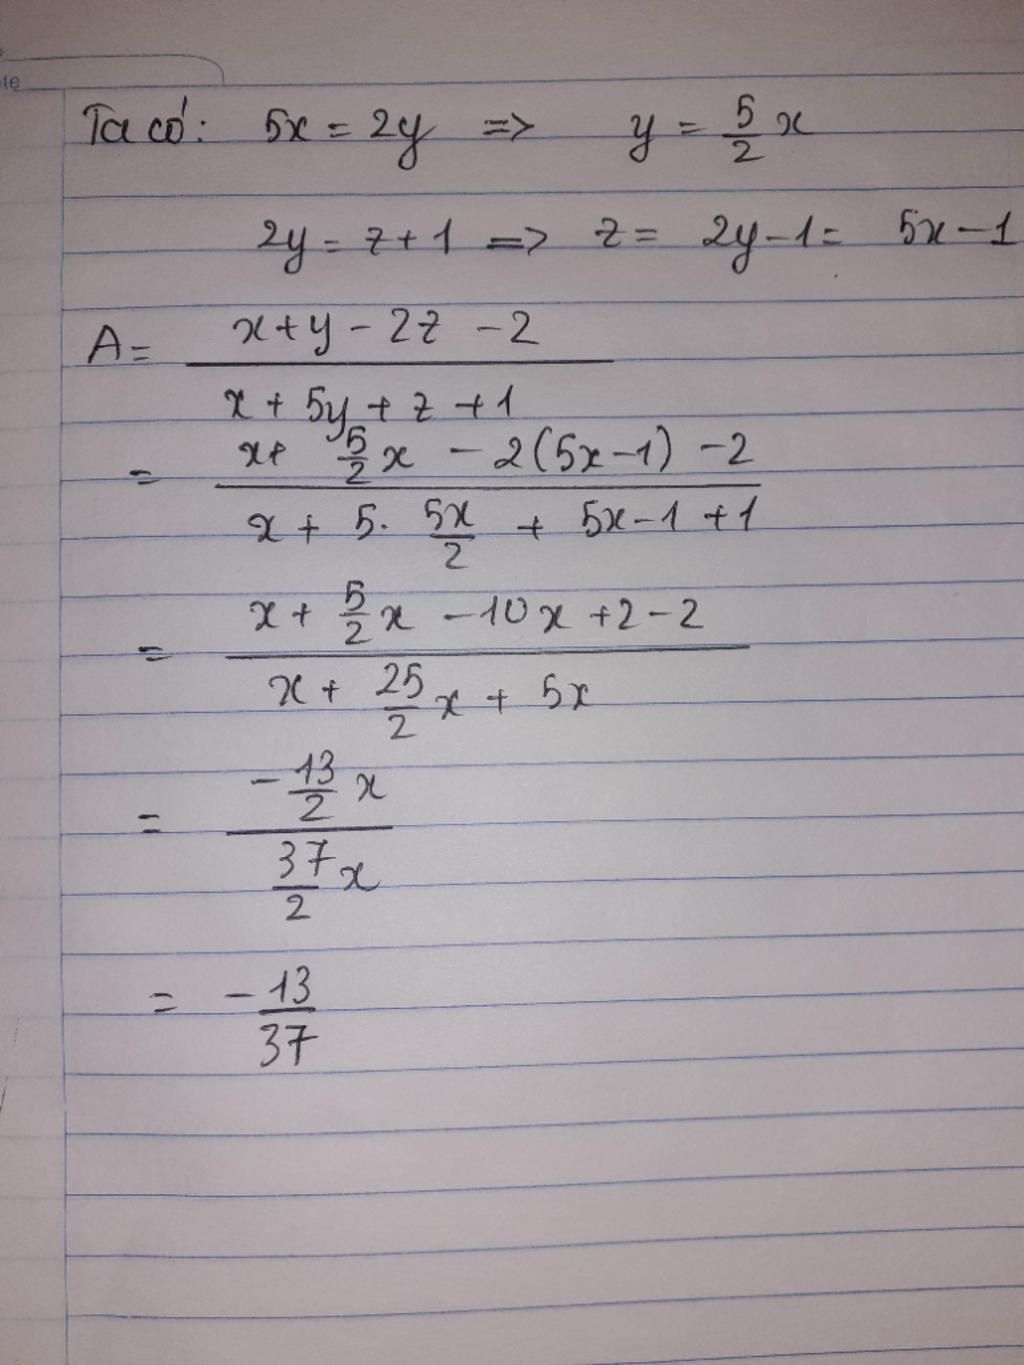 te
Ta có: 5x = 2y => y = 5/2 x
2y = z + 1 => z = 2y - 1 = 5x - 1
A = (x + y - 2z - 2)/(x + 5y + z + 1)
= (x + 5/2 x - 2(5x - 1) - 2)/(x + 5. 5x/2 + 5x - 1 + 1)
= (x + 5/2 x - 10x + 2 - 2)/(x + 25/2 x + 5x)
= (-13/2 x)/(37/2 x)
= -13/37